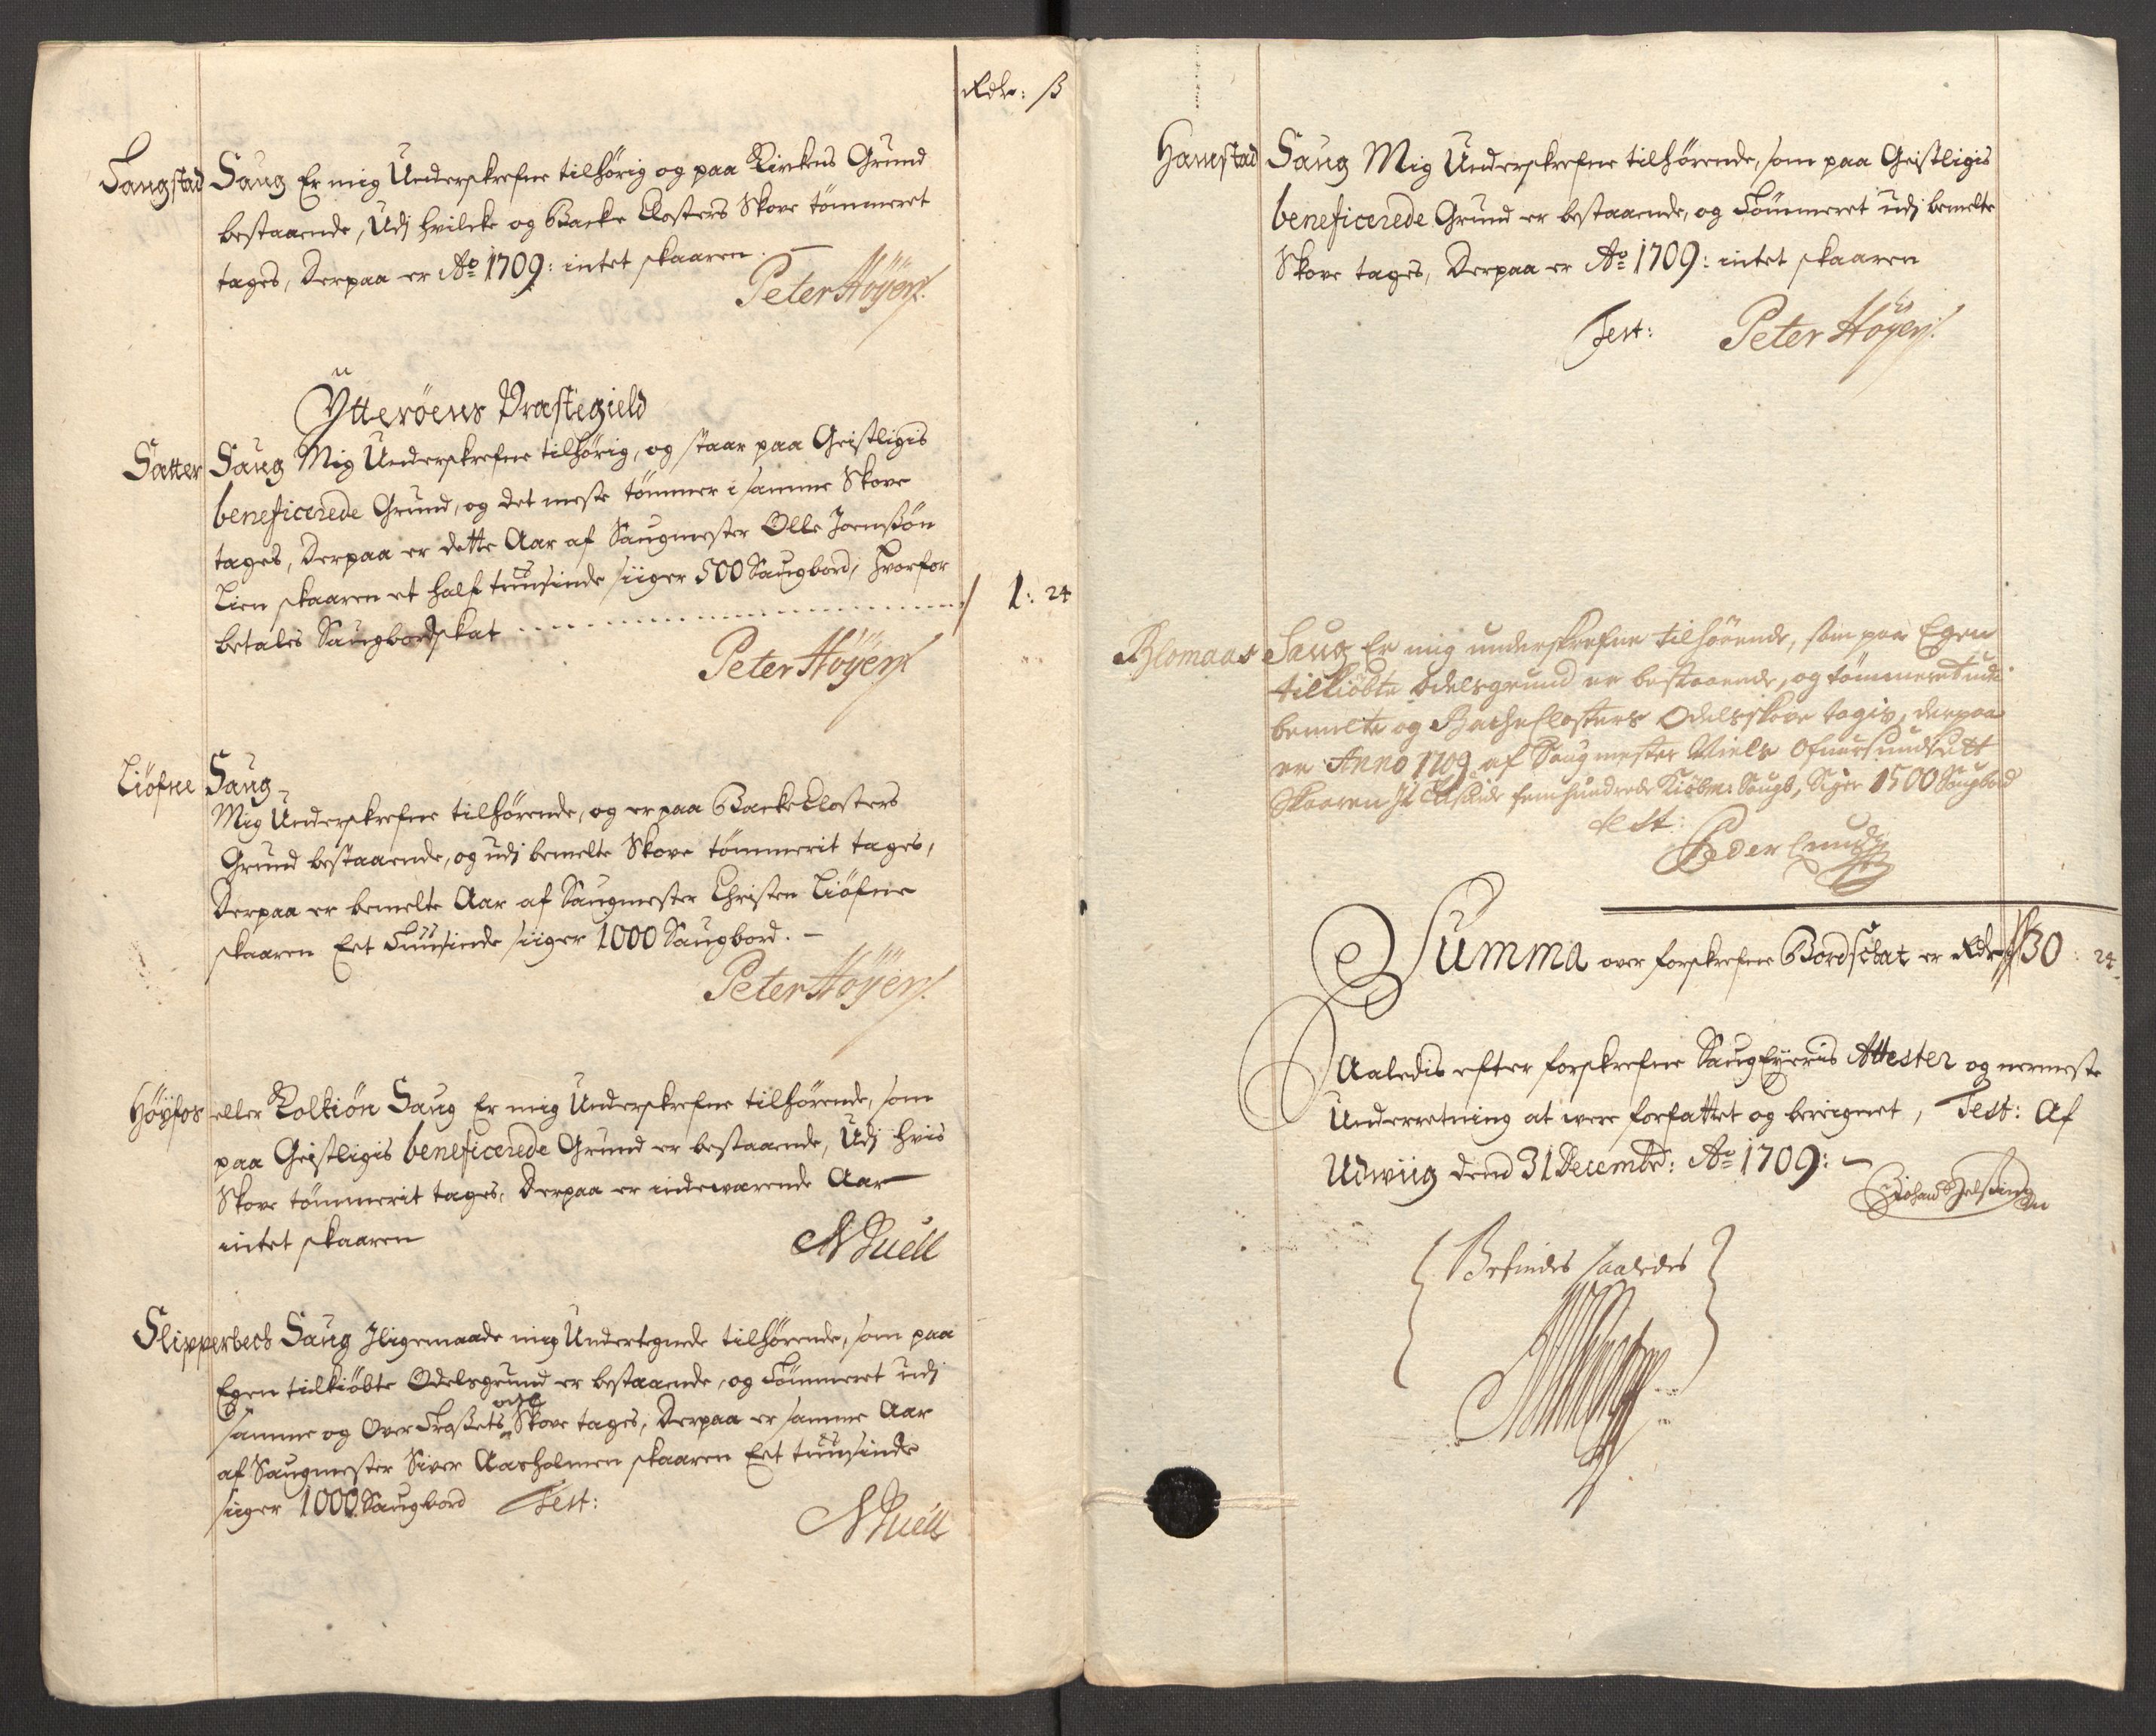 Rdr: ß
Langstad Saug Er mig Underskrefne tilhørig og paa Kirkens Grund
bestaaende, Udj hvilcke og Backe Closters Skove tømmeret
tages, Derpaa er Ao 1709: intet skaaren.
Peter Höyer
Ytterøens Præstegield
Sætter Saug Mig Underskrefne tilhørig, og staar paa Geistligis
beneficerede Grund, og det meste tømmer i samme Skove
tages, Derpaa er dette Aar af Saugmester Olle Joenssøn
Lien skaaren et half tuusinde siiger 500 Saugbord, hvorfor
betales Saugbordskat 1: 24
Peter Höyer
Liøfne Saug
Mig Underskrefne tilhørende, og er paa Backe Closters
Grund bestaaende, og udj bemelte Skove tømmerit tages,
Derpaa er bemelte Aar af Saugmester Christen Liøfne
skaaren Eet Tuusinde siiger 1000 Saugbord.
Peter Höyer
Høyfos eller Rolkiøn Saug Er mig Underskrefne tilhørende, som
paa Geistligis beneficerede Grund er bestaaende, Udj hvis
Skove tømmerit tages, Derpaa er indewærende Aar
intet skaaren
Slipperbech Saug Jligemaade mig Undertegnede tilhørende, som paa
Egen tilkiøbte Odelsgrund er bestaaende, og Tømmeret udj
samme og Over Skove tages, Derpaa er samme Aar
af Saugmester Siver Aarholmen skaaren Eet tuusinde
siiger 1000 Saugbord Test:
Hamstad Saug Mig Underskrefne tilhørende, som paa Geistligis
beneficerede Grund er bestaaende, og Tømmeret udj bemelte
Skove tages, Derpaa er Ao 1709: intet skaaren
Test: Peter Höyer
Blomaas Saug Er mig underskrefne tilhørende, som paa Egen
tilkiøbte Odelsgrund er bestaaende, og tømmeret udi
bemelte og Bache Closters Odelsskove tagis, derpaa
er Anno 1709 af Saugmester Niels
Skaaren femhundrede Saugb, Siger 1500 Saugbord
Test:
Summa over forskrefne Bordschat er Rdr 30: 24
Saaledis efter forskrefne SaugEyeris Attester og nermeste
Underretning at were forfattet og beregnet, Test: Af
Udwiig dend 31 Decembr: Ao 1709:
Befindes saaledes